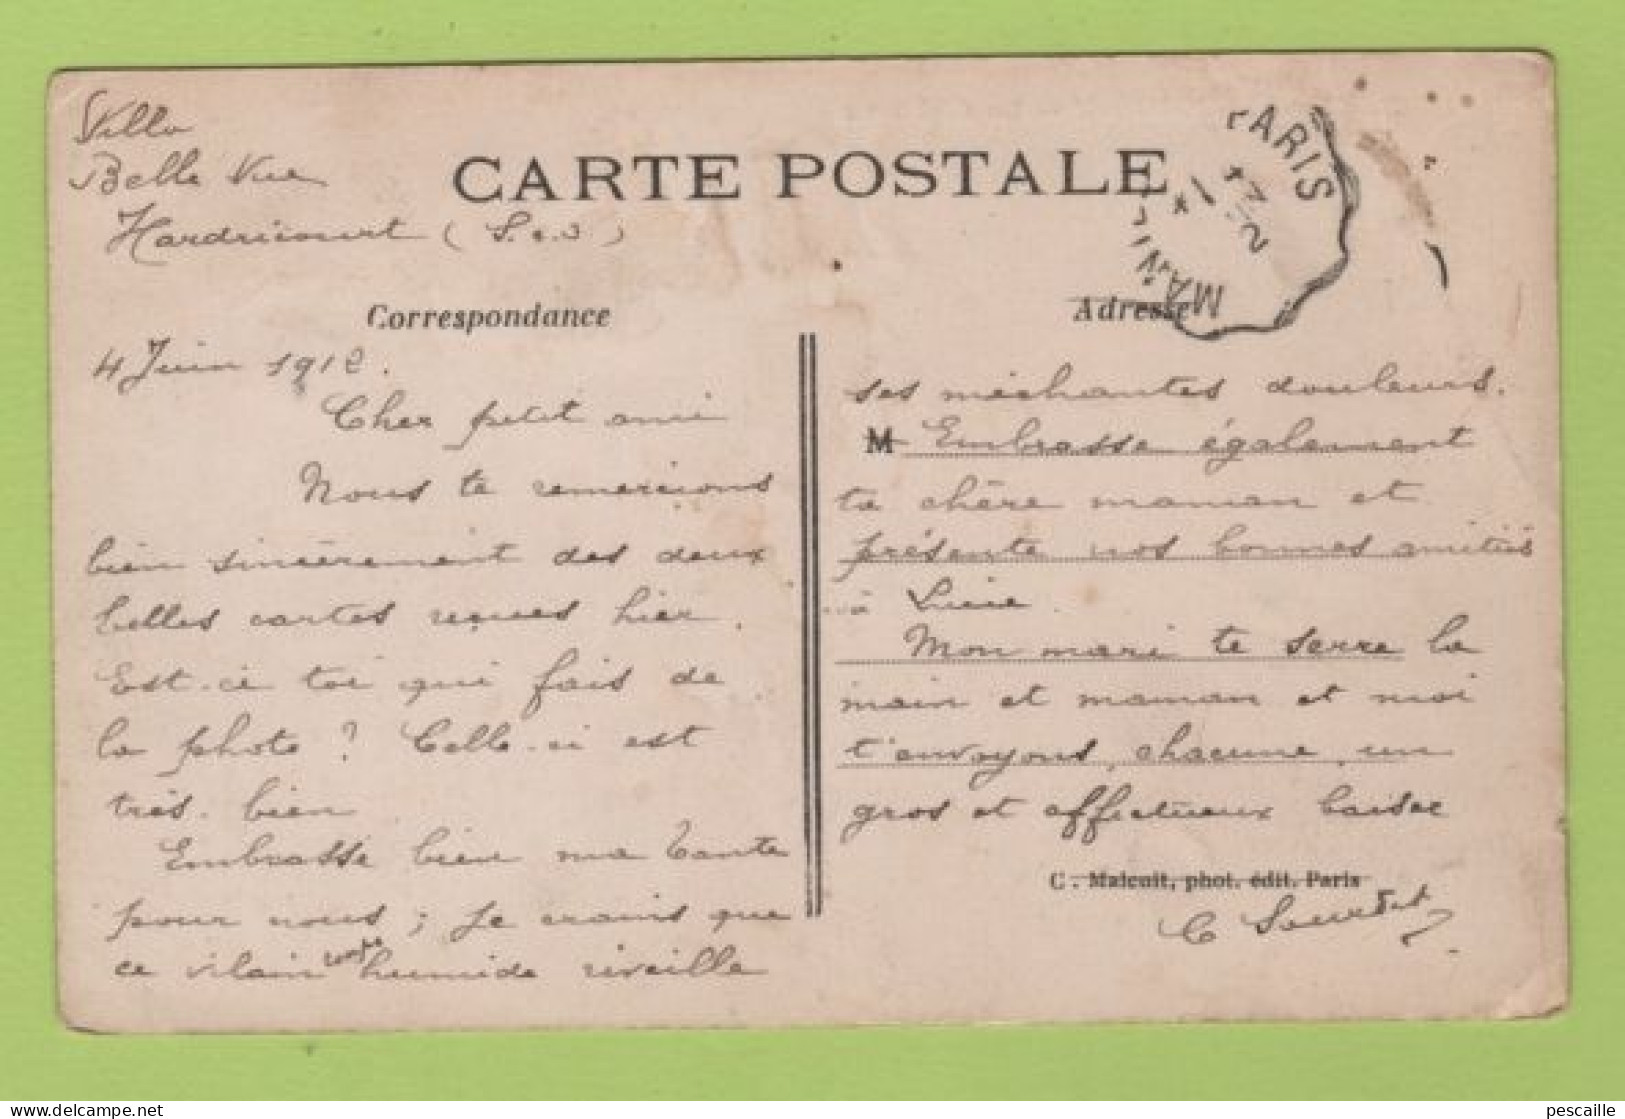 Villa
Belle Vue
Hardricourt (S. & O)
CARTE POSTALE
PARIS
MANT
Correspondance
Adresse
4 Juin 1912.
Cher petit ami
Nous te remercions
bien sincèrement des deux
belles cartes reçues hier.
Est-ce toi qui fais de
la photo ? Celle-ci est
très bien
Embrasse bien ma tante
pour nous ; je crains que
ce vilain temps humide réveille
ses méchantes douleurs.
M Embrasse également
ta chère maman et
présente nos bonnes amitiés
à Lucie.
Mon mari te serre la
main et maman et moi
t'envoyons, chacune, un
gros et affectueux baiser
C. Malcuit, phot. édit. Paris
C
pescaille
Delcampe.net